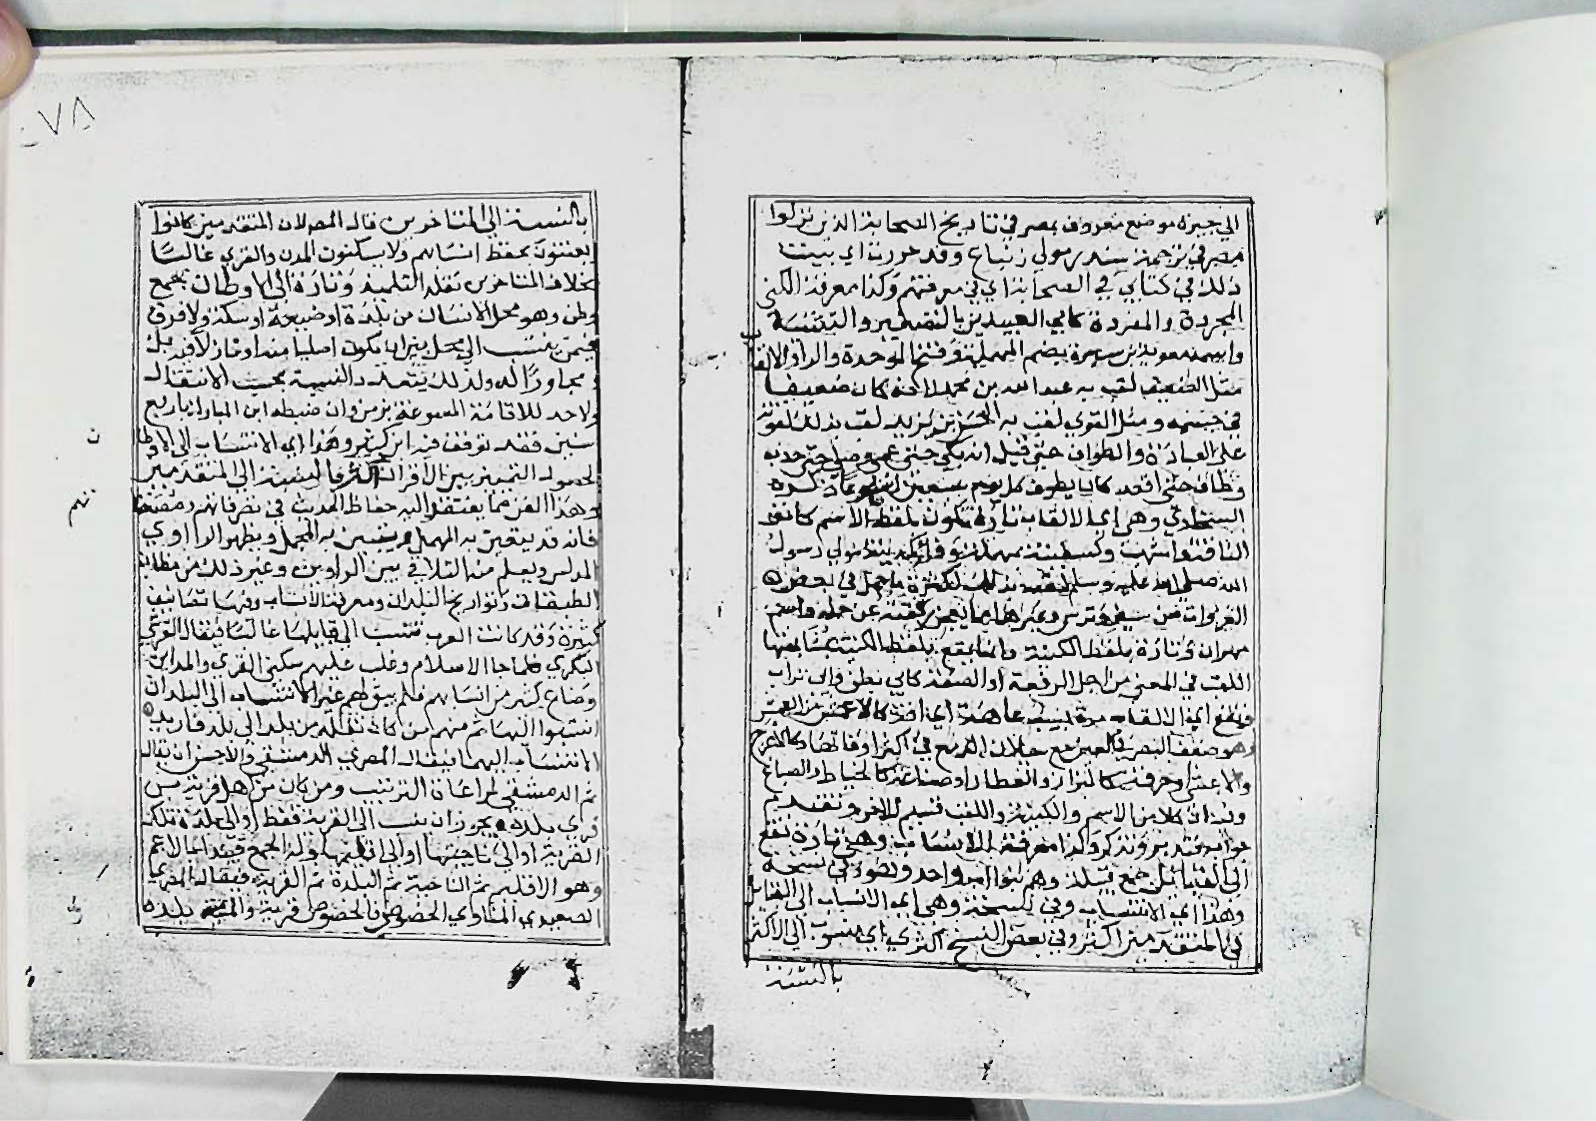 الي جيزة موضع معروف بمصر في تاريخ الصحابة الذين نزلوا
مصر في ترجمة سندر مولي زنباع وقد حررت اي بينت
ذلك في كتابي في الصحابة اي في معرفتهم وكذا معرفة الكني
المجردة والمفردة كابي العبيدين بالتصغير والتثنية
واسمه معوية بن سبرة بضم المهملة وفتح الموحدة والراو الالقاب
مثل الضعيف لقب به عبد الله بن محمد لانه كان ضعيفا
في جسمه ومثل القوي لقب به الحسن بن يزيد لقب بذلك لقوته
علي العبادة والطواف حتي قيل انه بكي حتي عمي وصلي حتي حدب
وطاف حتي اقعد كان يطوف كل يوم سبعين اسبوعا ذكره
السخاوي وهي اي الالقاب تارة تكون بلفظ الاسم كاشهر
وكسفينة بمهملة وفا لقب مولي رسول
الله صلي الله عليه وسلم لقب بذلك لكثرة ما حمل في بعض
الغزوات من سيف وترس وغيرهما مما يعجز رفقته عن حمله واسمه
مهران وتارة بلفظ الكنية وانما يقع بلفظ الكنية
اللقب في المعني من اجل الرفعة او الصفة كابي بطن وابي تراب
وتقع اي الالقاب مرة بسبب عاهة اي افة كالاعمش من العمش
وهو ضعف البصر في العين مع سيلان الدمع في اكثر اوقاتها وكالاعرج
والاعشي او حرفة كالبزار والعطار او صناعة كالخياط والصباغ
كلا من الاسم والكنية واللقب قسيم للاخر وتقديم
وكذا معرفة الانساب وهي تارة تقع
الي القبائل جمع قبيلة وهم بنو اب واحد
وهذا اي الانتساب وفي نسخة وهي اي الانساب الي القبايل
في المتقدمين اكثر وفي بعض النسخ اكثري اي منسوب الي الاكثر
بالنسبة
٧٨
بالنسبة الي المتاخرين قال المص لان المتقدمين كانوا
يعتنون بحفظ انسابهم ولا يسكنون المدن والقري غالبا
بخلاف المتاخرين نقله التلميذ وتارة الي الاوطان جمع
وطن وهو محل الانسان من بلدة او ضيعة او سكة ولا فرق
فيمن ينسب الي محل بين ان يكون اصليا منه او نازلا فيه بل
ومجاورا له ولذلك يتعدد النسبة بحسب الانتقال
ولا حد للاقامة المسوغة بزمن وان ضبطه ابن المبارك باربع
سنين فقد توقف فيه ابن كثير وهذا اي الانتساب الي الاوطان
لحصول التميز بين الاقران اكثر بالنسبة الي المتقدمين
وهذا الفن مما يفتقر اليه حفاظ الحديث في تصرفاتهم ومصنفاتهم
فانه قد يتعين به المهمل ويتبين به المجمل ويظهر الراوي
المدلس ويعلم منه التلاقي بين الراوين وغير ذلك من مظانه
الطبقات وتواريخ البلدان ومعرفة الانساب وفيها تصانيف
كثيرة وقد كانت العرب تنتسب الي قبايلها غالبا فيقال القرشي
البكري فلما جا الاسلام وغلب عليهم سكني القري والمداين
وضاع كثير من انسابهم فلم يبق لهم غير الانتساب الي البلدان
انتسبوا اليها ثم منهم من كان نقلة من بلد الي بلد فاريد
الانتساب اليهما فيقال المصري الدمشقي والاحسن ان يقال
ثم الدمشقي لمراعاة الترتيب ومن كان من اهل قرية من
قري بلدة يجوز ان ينسب الي القرية فقط او الي بلدة تلك
القرية او الي ناحيتها او الي اقليمها وله الجمع فيبدا بالاعم
وهو الاقليم ثم الناحية ثم البلدة ثم القرية فيقال المصري
الصعيدي المناوي الخصوصي والخصوص قرية والمنية بلدة